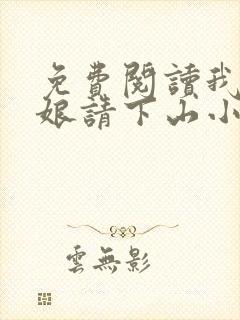 免費閱讀我
娘請下山小
雲無影